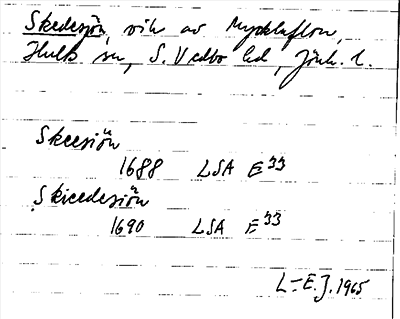 Skedesjön, vik av Mycklaflon,
Hults sn, S. Vedbo hd, Jönk. l.
Skeesiön
1688 LSA E 33
Skieedesiön
1690 LSA E 33
L-E.J. 1965